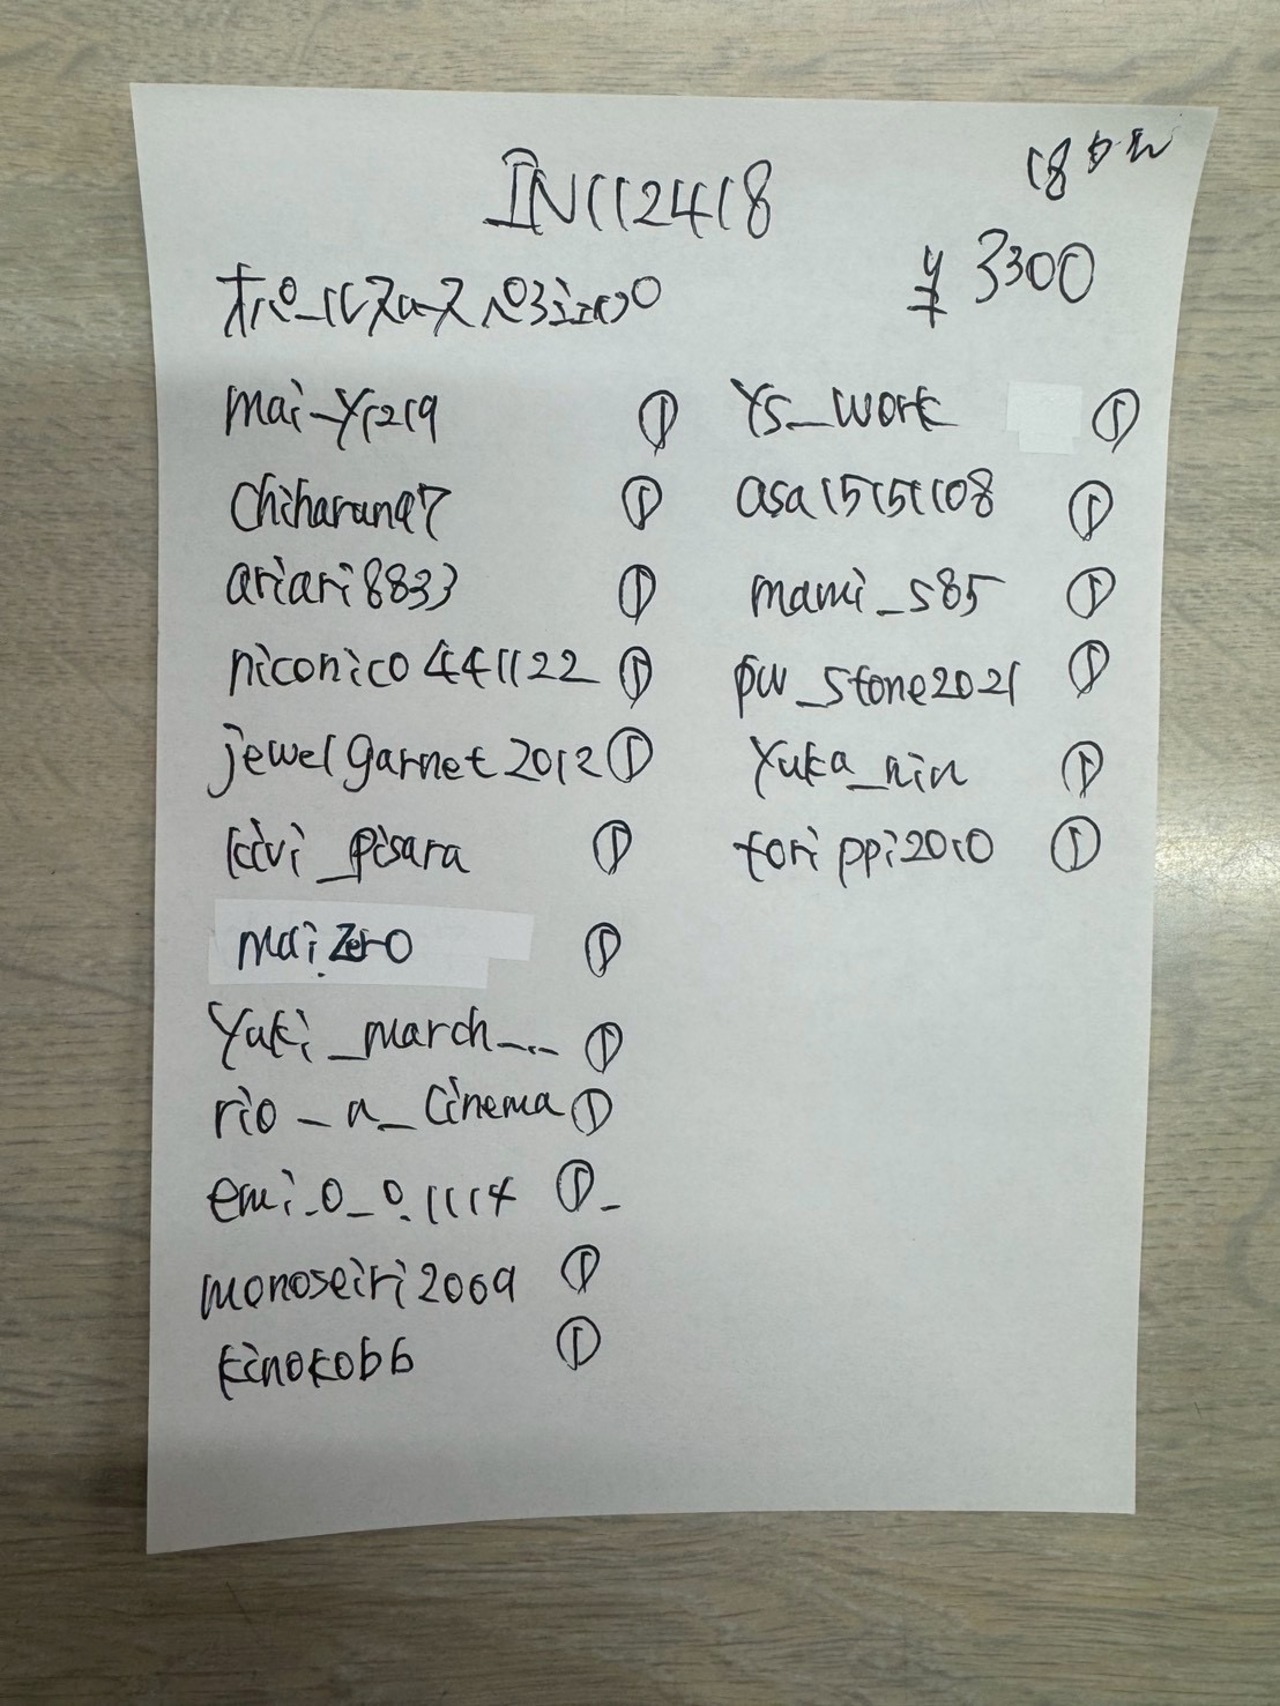 IN112418
¥3300
mai_y1219 ①
chiharun97 ①
ariari8833 ①
niconico441122 ①
jewelgarnet2012 ①
kivi_pisara ①
mai.zero ①
yuki_march_... ①
rio_a_cinema ①
emi.0_0.1114 ①
monoseiri2009 ①
kinoko66 ①
Ys_work ①
asa15151108 ①
mami_s85 ①
pw_stone2021 ①
yuka_nin ①
torippi2010 ①